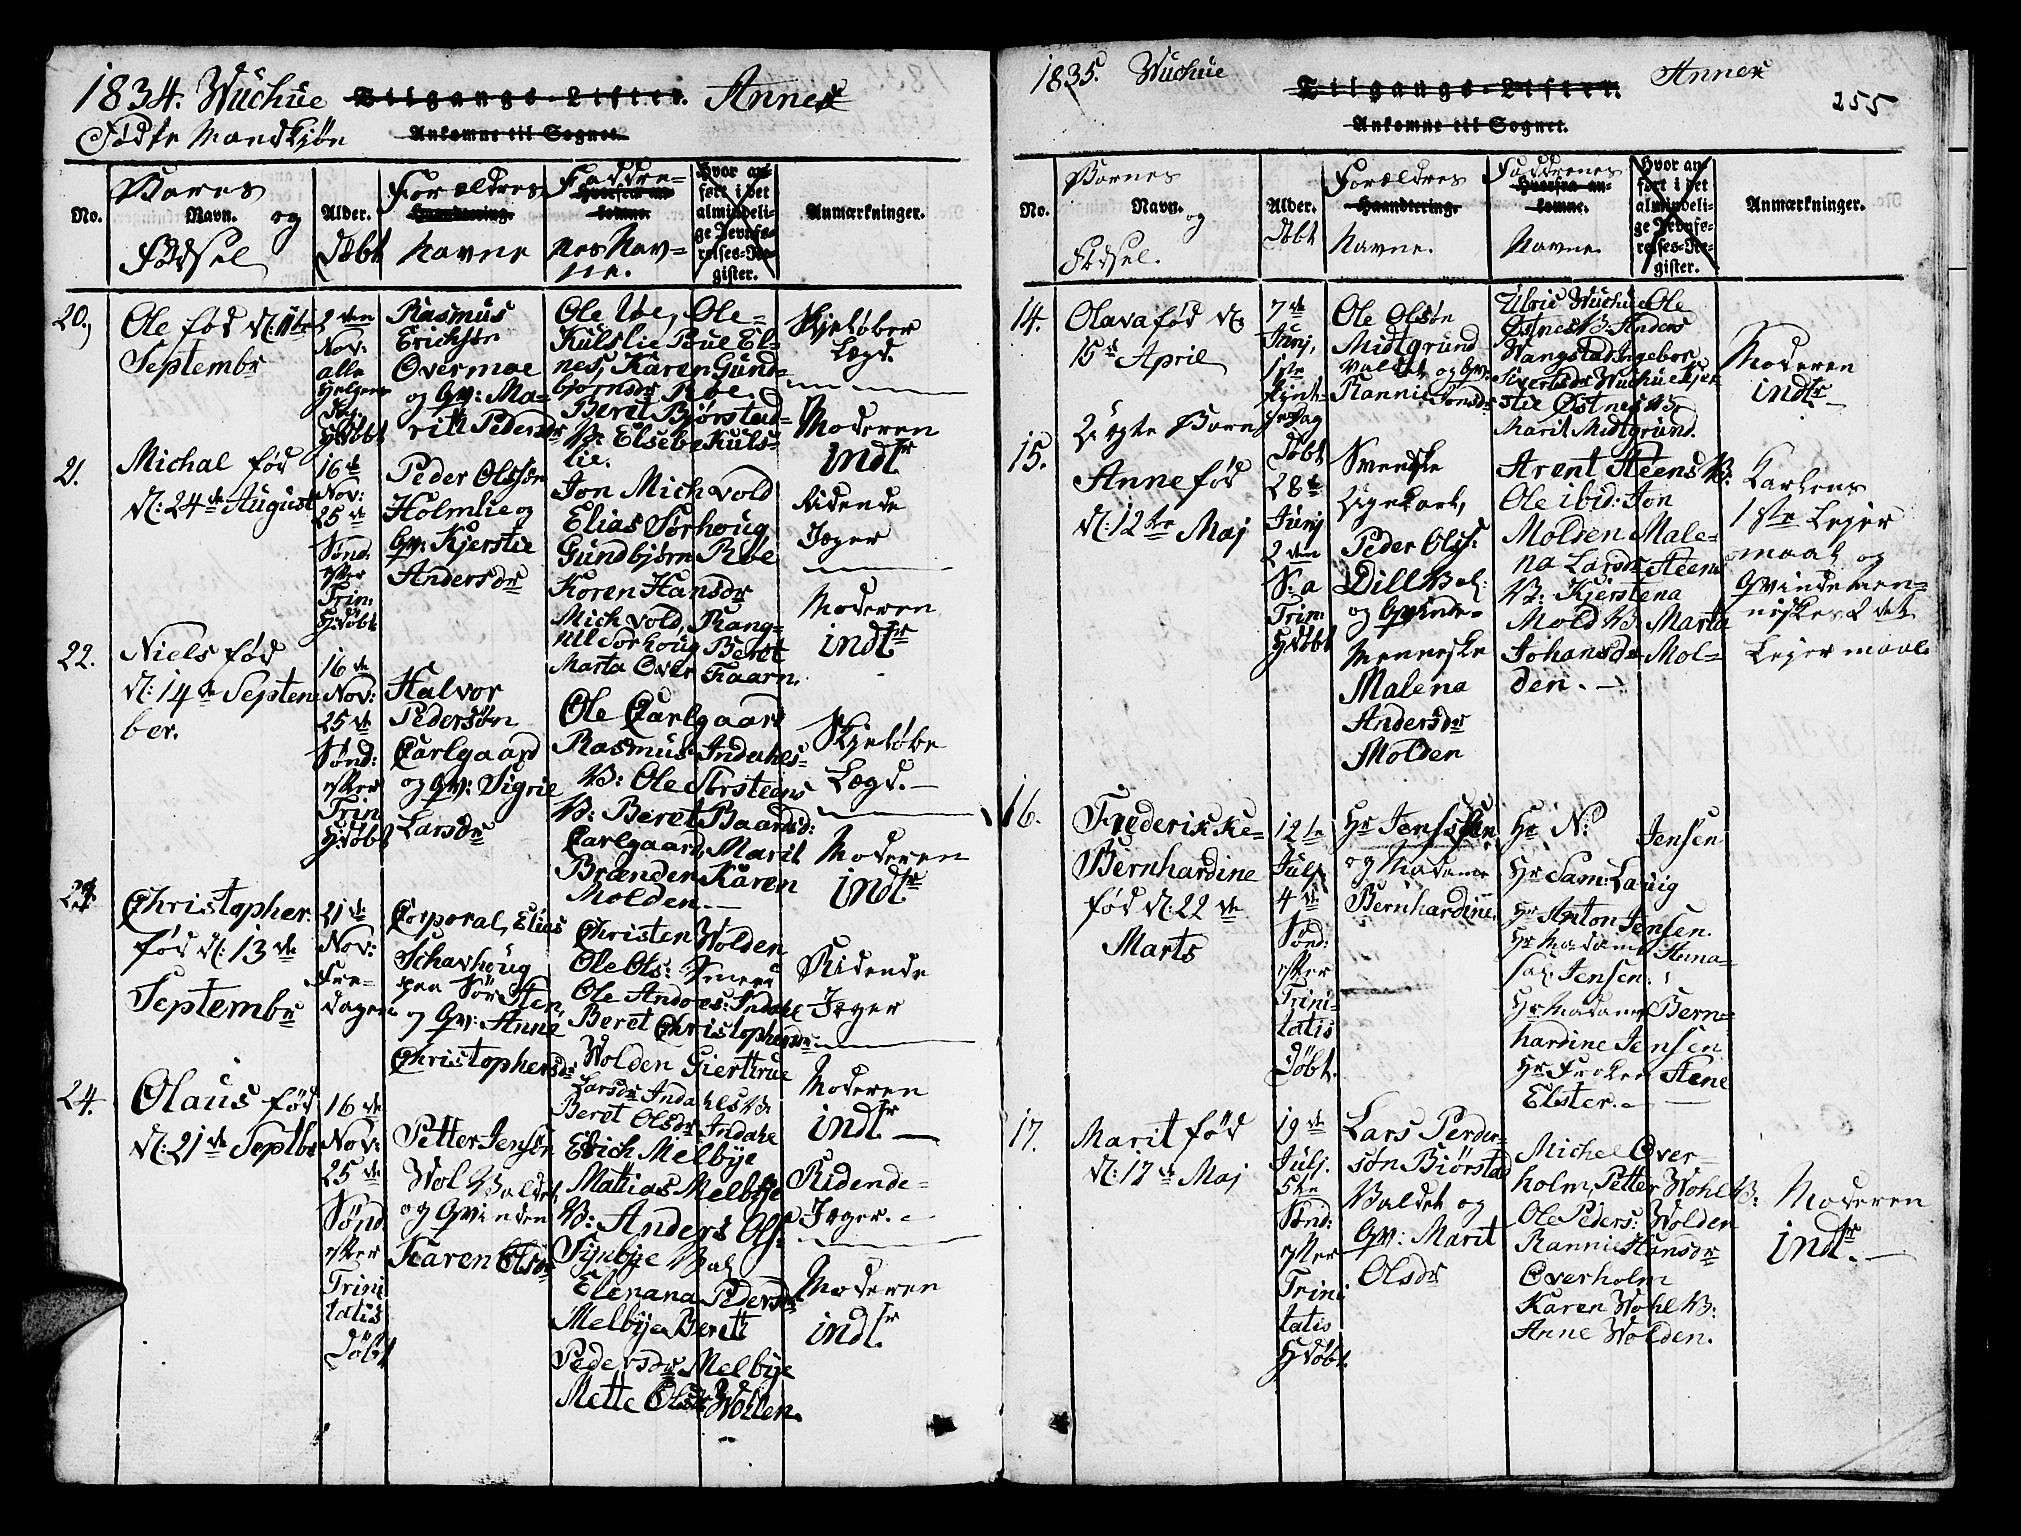 1834. Wuchue Tilgangs-Lister. Annex
Fødte Mandkjøn Ankomne til Sognet.
No.
Børnes
Navn. og
Fødsel
Alder.
Døbt
Forældres
Haandtering.
Navne
Faddre-
Hvorfra an-
komne.
nes Nav-
ne.
Hvor an-
ført i det
almindeli-
ge Jevnfø-
relses-Re-
gister.
Anmærkninger.
20.
Ole fød d:
Septembr
2den
Nov:
alle
Helgens
Dag
Hdøbt
Rasmus
Erichsøn
Overmoe
og Gv: Ma-
rit Pedersdr
Ole Loe, Ole
Kulslie Poue El-
nes, Karen Gund-
biørnsdr Roe.
Beret Bjørstad-
V: Elsebe Kuls-
lie.
Skjeløber
Lægd.
Moderen
indl.
21.
Michal fød
d: 24de August
16de
Nov:
25de
Sønd:
efter
Trin:
Hdøbt
Peder Olssøn
Holmlie og
Gv: Kjerstie
Andersdr
Jon Mich vold
Elias Sørhoug
Gundbjørn Roe
Karen Hansdr
Mich vold, Rang-
nil Sørhoug Beret
Marta Over Faarn.
Ridende
Jæger
Moderen
indtr
22.
Niels fød
d: 14de Septem
ber.
16de
Nov:
25de
Sønd:
efter
Trin
Hdøbt
Halvor
Pedersøn
Carlgaard
og Gv: Sigrie
Larsdr
Ole Carlgaard
Rasmus Indahls-
V: Ole Storsteens
V: Beret Baardsd:
Carlgaard, Marit
Brænden Karen
Molden.
Skjeløbe
Lægd.
Moderen
indtr
23
Christopher.
fød d: 13de
Septembr
21de
Nov:
Fre-
dagen
Corporal, Elias
Schavhoug
paa Sør Sten
og Gv: Anne
Christophersdr
Christen Wolden
Ole Ols:
Ole Andors: Indahl
Beret Christophersdr
Wolden Giertrue
Larsdr Indahls V:
Beret Olsdr Indahl
Ridende
Jeger
Moderen
indtr
24.
Olaus fød
d: 21de Septbr
16de
Nov:
25de
Sønd
efter
Trini
tatis
Døbt
Petter Jensøn
Wol Valdet
og Qvinden
Karen Olsdr
Erich Melbye
Mathias Melbye
V: Anders Ols:
Fynbye Val
Elenana Pedersdr
Melbye Berett
Pedersdr Melbye
Mette Olsdr Wollen.
Ridende-
Jeger.
Moderen
indtr
1835. Wuchue Tilgangs-Lister. Annex
255
Ankomne til Sognet.
No.
Børnes
Navn. og
Fødsel.
Alder.
Døbt
Forældres
Haandtering.
Navne.
Faddrenes
Hvorfra an-
komne.
Navne
Hvor an-
ført i det
almindeli-
ge Jevnfø-
relses-Re-
gister.
Anmærkninger.
14.
Olava fød d:
15de April
7de
Junj,
1ste
Pint-
sedag
Døbt
Ole Olsøn
Midtgrund
Valdet og Gv:
Rannie Jonsdr
Elvie Wuchue Ole
Østnes V: Anders
Wangstad Ingebor
Sivertsdr Wuchue Kjer
stie Østnes V:
Marit Midtgrund.
Moderen
indtr
15.
Uægte Barn
Anne fød
d: 12te Maj
28de
Junj
2den
S: a
Trin:
Hdøbt
Svenske
Ugekarl,
Peder Olss:
Dill Val:
og Qvinde-
Menneske
Malena
Andersdr
Molden
Arent Steens V:
Ole ibid: Jon
Molden Male-
na Larsdr Steens
V: Kjerstena
Mold V: Marta
Johansdr Mol-
den.
Karlens
1ste Lejer
maal og
Qvindemen-
neskes 2det
Lejermaal.
16.
Frederikke-
Bernhardine
fød d: 22de
Marts
12te
Julj
4de
Sønd:
efter
Trini-
tatis
Døbt.
Hr Jenssen
og Madame
Bernhardine.
Hr N: Jensen
Hr Sam: Lavig
Hr Anton Jensen.
Hr Madame Hana-
Jensen:
Hr Madame Bern-
hardine Jensen
Hr Frøken Stene
Elster.
17.
Marit fød
d: 17de Maj
19de
Julj.
5te
Sønd:
efter
Trini
tatis
Hdøbt
Lars Perder-
søn Biørstad
Valdet og
Gv: Marit
Olsdr
Michel Over-
holm, Petter Wohl V:
Ole Peders: Wolden
Rannie Hansdr
Overholm
Karen Wohl V:
Anne Wolden.
Moderen
indtr